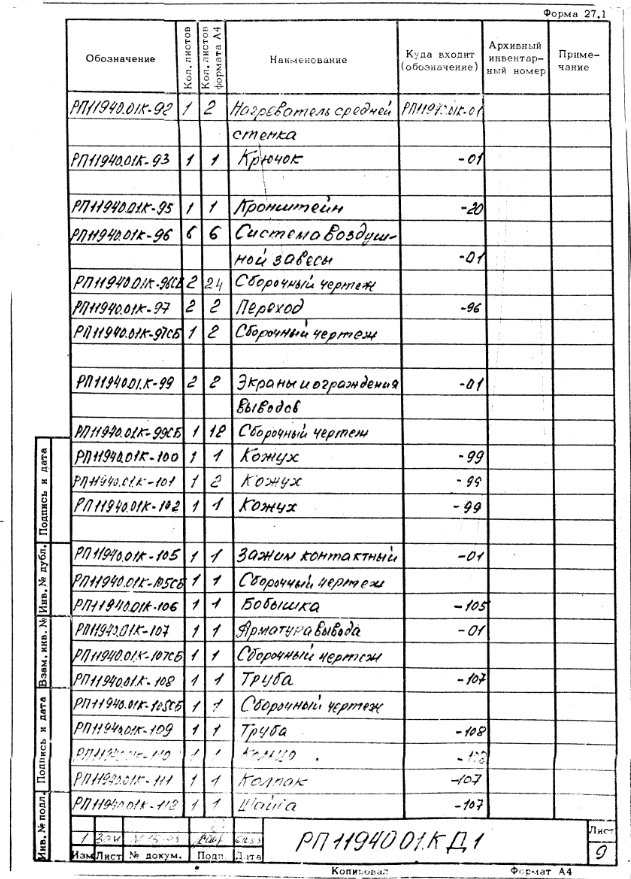 Форма 27.1
Обозначение Кол. листов Кол. листов формата А4 Наименование Куда входит (обозначение) Архивный инвентар- ный номер Приме- чание
РП11940.01К-92 1 2 Нагреватель средней РП11940.01К-01
стенка
РП11940.01К-93 1 1 Крючок -01
РП11940.01К-95 1 1 Кронштейн -20
РП11940.01К-96 6 6 Система воздуш-
ной завесы -01
РП11940.01К-96СБ 2 24 Сборочный чертеж
РП11940.01К-97 2 2 Переход -96
РП11940.01К-97СБ 1 2 Сборочный чертеж
РП11940.01.К-99 2 2 Экраны и ограждения -01
выводов
РП11940.01К-99СБ 1 12 Сборочный чертеж
РП11940.01К-100 1 1 Кожух -99
РП11940.01.К-101 1 2 Кожух -99
РП11940.01К-102 1 1 Кожух -99
РП11940.01К-105 1 1 Зажим контактный -01
РП11940.01К-105СБ 1 1 Сборочный чертеж
РП11940.01К-106 1 1 Бобышка -105
РП11940.01К-107 1 1 Арматура вывода -01
РП11940.01К-107СБ 1 1 Сборочный чертеж
РП11940.01К-108 1 1 Труба -107
РП11940.01К-108СБ 1 1 Сборочный чертеж
РП11940.01К-109 1 1 Труба -108
РП11940.01К-110 1 1 Кольцо -108
РП11940.01К-111 1 1 Колпак -107
РП11940.01К-112 1 1 Шайба -107
Подписъ и дата
Инв. № дубл.
Взам. инв. №
Подпись и дата
Инв. № подл.
1 Зам
Изм Лист № докум. Подп Дата
РП11940 01.К Д1
Лист
9
Копировал Формат А4